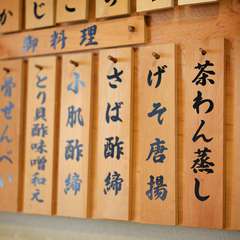 かじ
御料理
茶わん蒸し
げそ唐揚
さば酢締
小肌酢締
とり貝酢味噌和え
骨せんべい